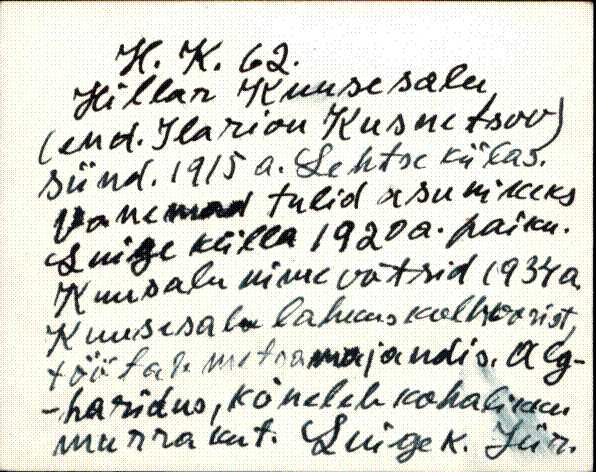 H. K. 62.
Hillar Kuusesalu
(end. Ilarion Kusnetsov)
sünd. 1915 a. Lehtse külas.
Vanemad tulid asunikeks
Luige külla 1920 a. paiku.
Kuusalu nime võtsid 1934 a.
Kuusesalu lahkus kolhoosist,
töötab metsamajandis. Alg-
-haridus, kõneleb kohalikku
murrakut. Luige k. Jür.